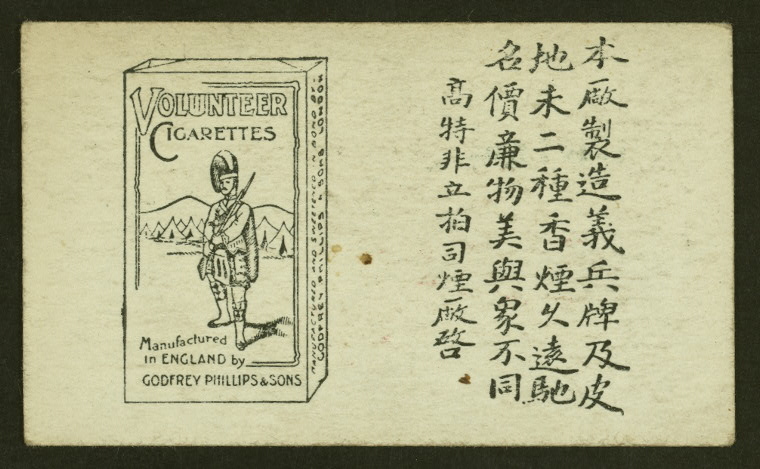 VOLUNTEER
CIGARETTES
Manufactured
in ENGLAND by
GODFREY PHILLIPS & SONS
本廠製造義兵牌及皮
地未二種香煙久遠馳
名價廉物美與衆不同
高特非立拍司煙廠啓